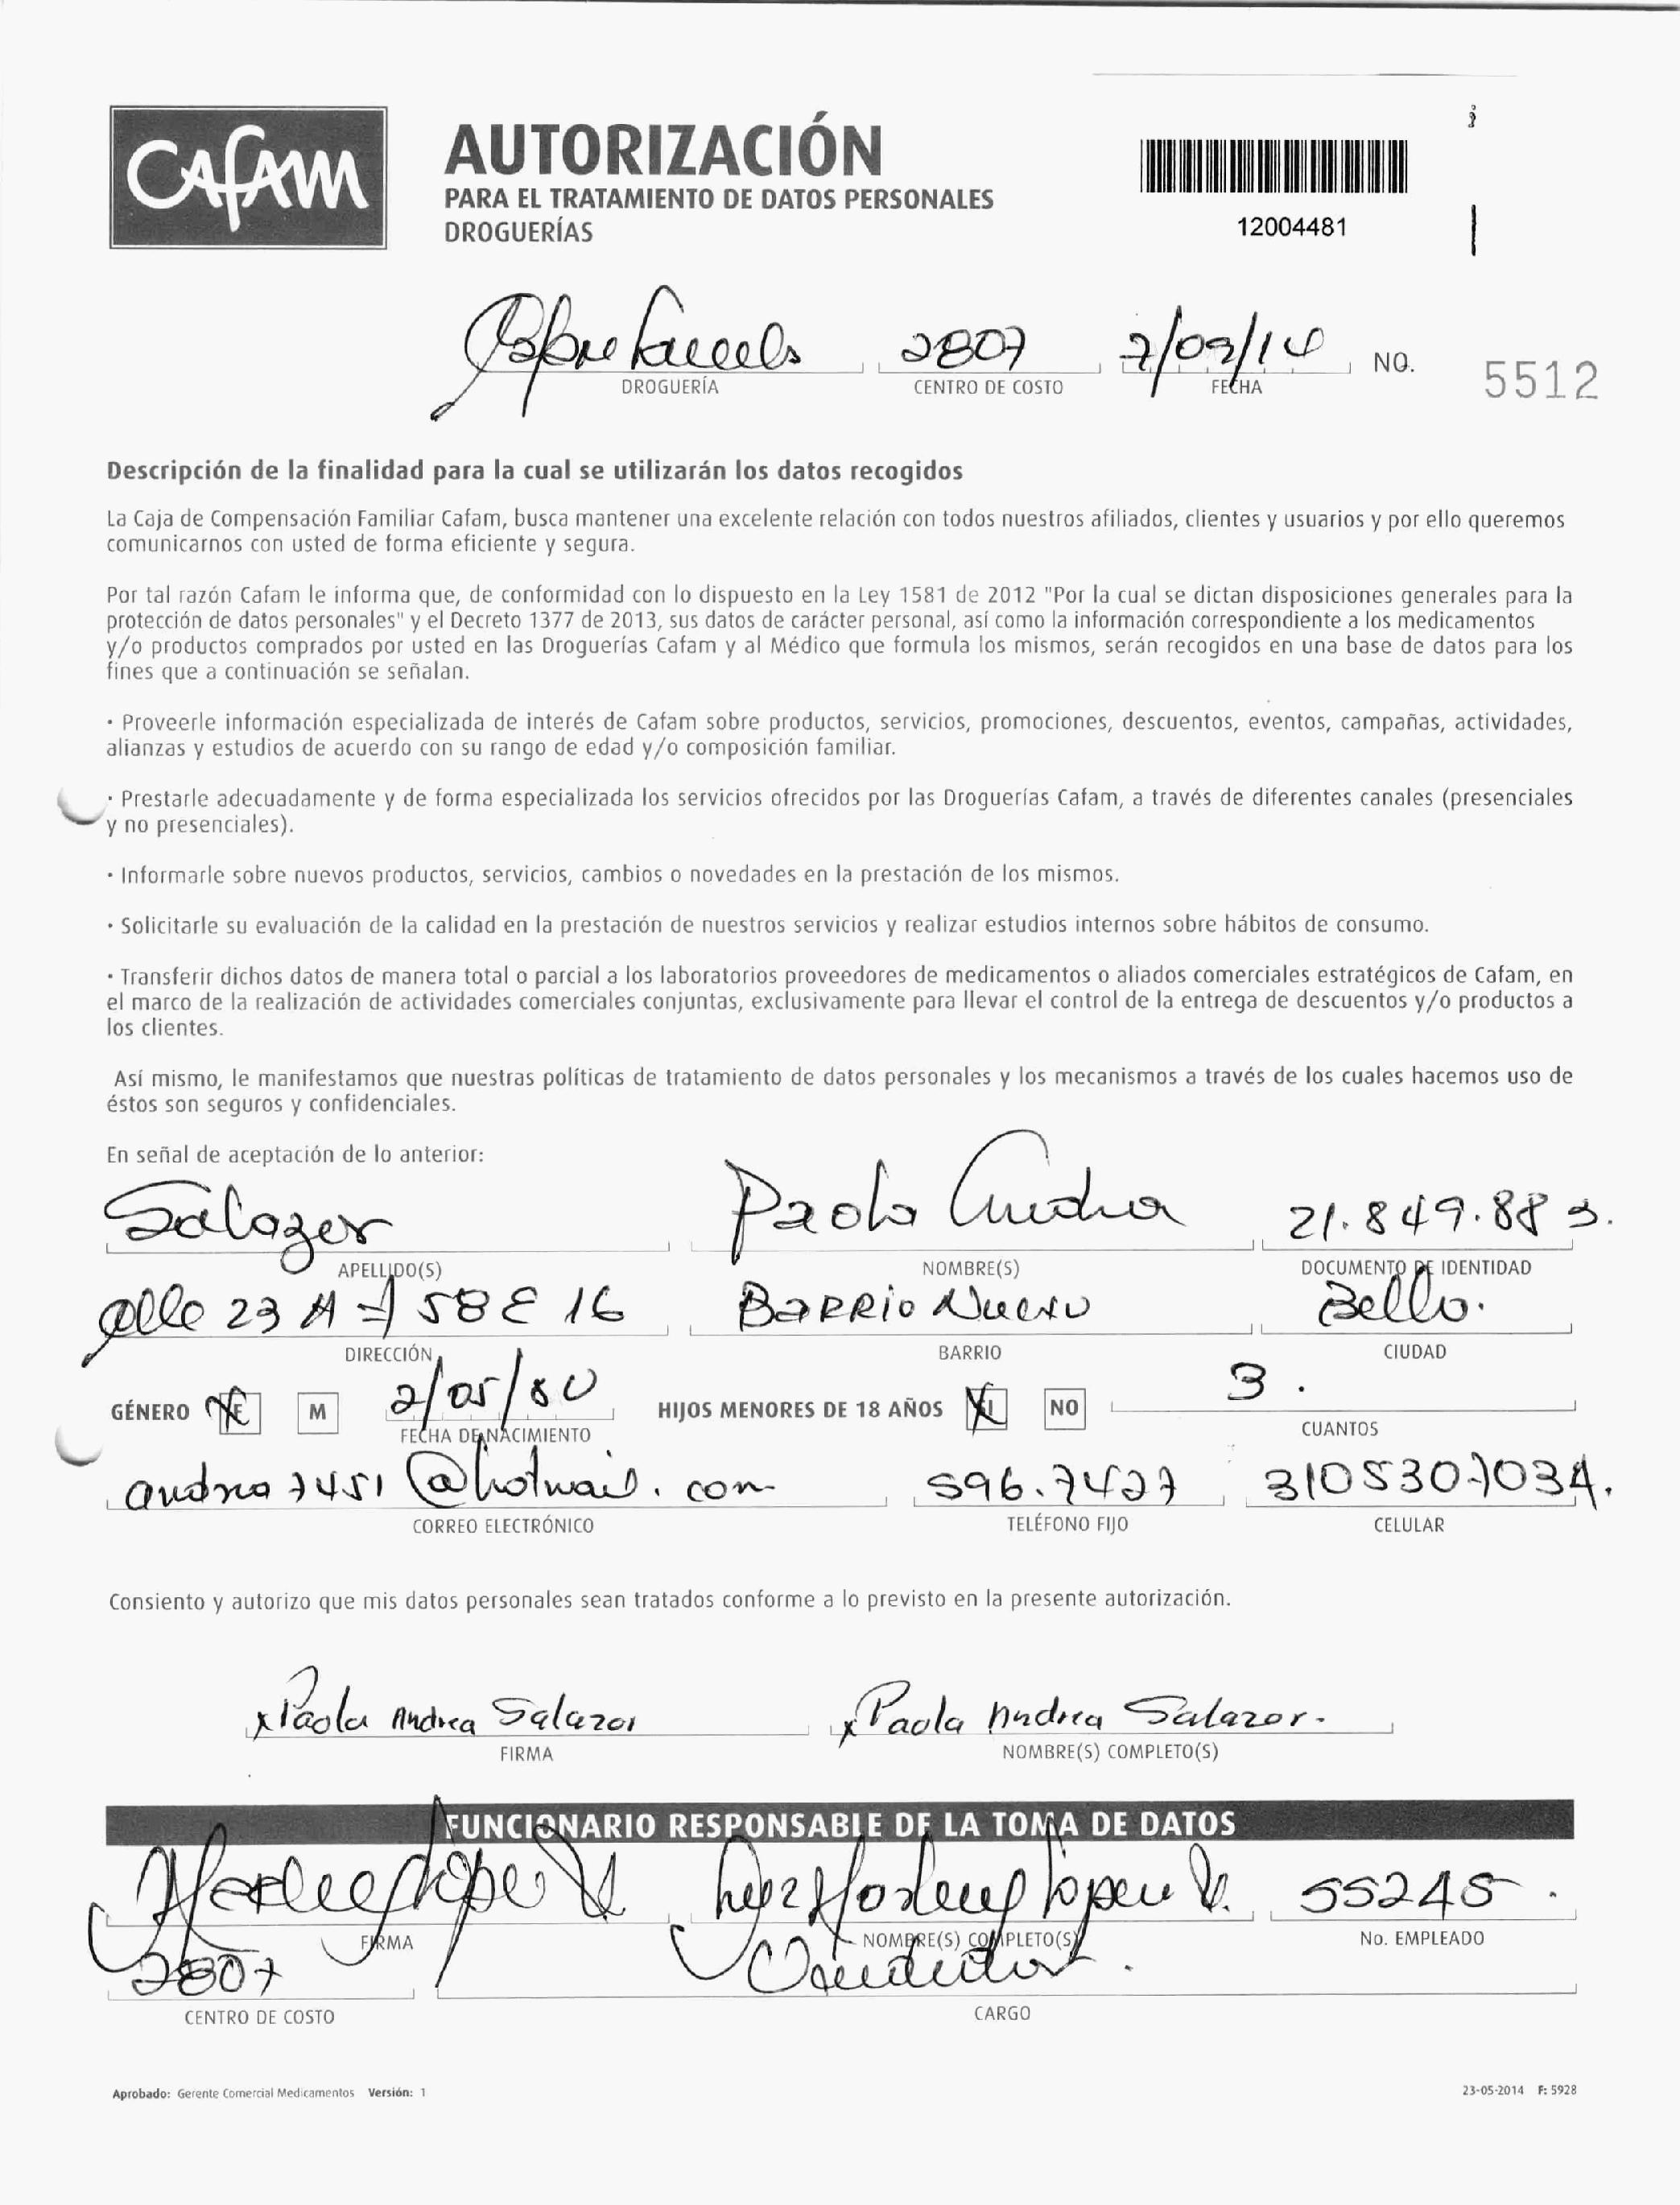 Cafam
AUTORIZACIÓN
PARA EL TRATAMIENTO DE DATOS PERSONALES
DROGUERÍAS
12004481
2807 NO. 5512
DROGUERÍA CENTRO DE COSTO FECHA
Descripción de la finalidad para la cual se utilizarán los datos recogidos
La Caja de Compensación Familiar Cafam, busca mantener una excelente relación con todos nuestros afiliados, clientes y usuarios y por ello queremos
comunicarnos con usted de forma eficiente y segura.
Por tal razón Cafam le informa que, de conformidad con lo dispuesto en la Ley 1581 de 2012 "Por la cual se dictan disposiciones generales para la
protección de datos personales" y el Decreto 1377 de 2013, sus datos de carácter personal, así como la información correspondiente a los medicamentos
y/o productos comprados por usted en las Droguerías Cafam y al Médico que formula los mismos, serán recogidos en una base de datos para los
fines que a continuación se señalan.
· Proveerle información especializada de interés de Cafam sobre productos, servicios, promociones, descuentos, eventos, campañas, actividades,
alianzas y estudios de acuerdo con su rango de edad y/o composición familiar.
· Prestarle adecuadamente y de forma especializada los servicios ofrecidos por las Droguerías Cafam, a través de diferentes canales (presenciales
y no presenciales).
· Informarle sobre nuevos productos, servicios, cambios o novedades en la prestación de los mismos.
· Solicitarle su evaluación de la calidad en la prestación de nuestros servicios y realizar estudios internos sobre hábitos de consumo.
· Transferir dichos datos de manera total o parcial a los laboratorios proveedores de medicamentos o aliados comerciales estratégicos de Cafam, en
el marco de la realización de actividades comerciales conjuntas, exclusivamente para llevar el control de la entrega de descuentos y/o productos a
los clientes.
Así mismo, le manifestamos que nuestras políticas de tratamiento de datos personales y los mecanismos a través de los cuales hacemos uso de
éstos son seguros y confidenciales.
En señal de aceptación de lo anterior:
Salazar Paola Andrea 21.849.883.
APELLIDO(S) NOMBRE(S) DOCUMENTO DE IDENTIDAD
58E 16 Barrio Nuevo Bello.
DIRECCIÓN BARRIO CIUDAD
GÉNERO F M 2/05/80 HIJOS MENORES DE 18 AÑOS SI NO 3.
FECHA DE NACIMIENTO CUANTOS
andrea7451@hotmail.com 596.7427 3105307034.
CORREO ELECTRÓNICO TELÉFONO FIJO CELULAR
Consiento y autorizo que mis datos personales sean tratados conforme a lo previsto en la presente autorización.
x Paola Andrea Salazar x Paola Andrea Salazar.
FIRMA NOMBRE(S) COMPLETO(S)
FUNCIONARIO RESPONSABLE DE LA TOMA DE DATOS
55245.
FIRMA NOMBRE(S) COMPLETO(S) No. EMPLEADO
2807
CENTRO DE COSTO CARGO
Aprobado: Gerente Comercial Medicamentos Versión: 1 23-05-2014 F: 5928